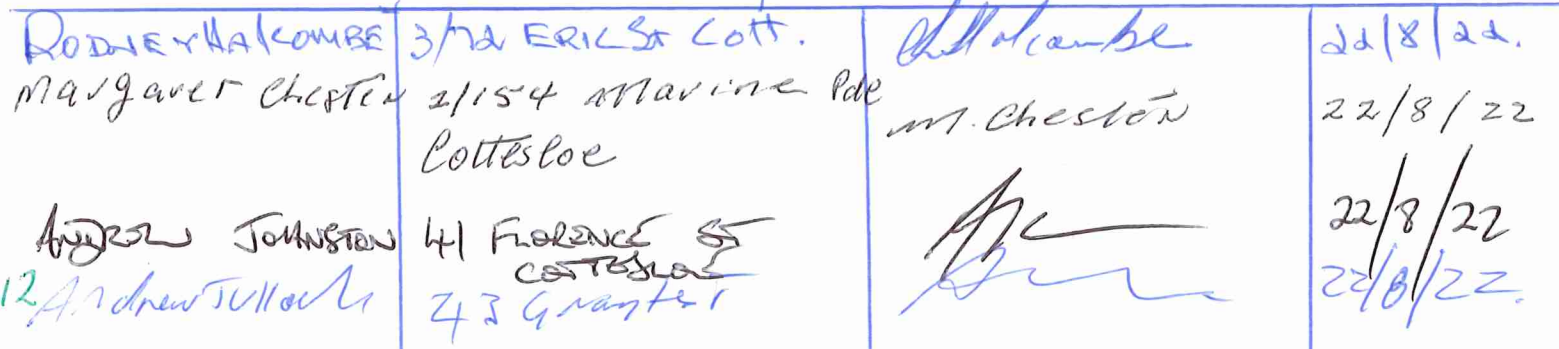 RODNEY HALCOMBE 3/72 ERIC St Cott. Halcombe 22/8/22.
Margaret Chester 2/154 Marine Pde M. Chester 22/8/22
Cottesloe
ANDREW JOHNSTON 41 FLORENCE ST 22/8/22
COTTESLOE
12 Andrew Tulloch 43 Grant St 22/8/22.